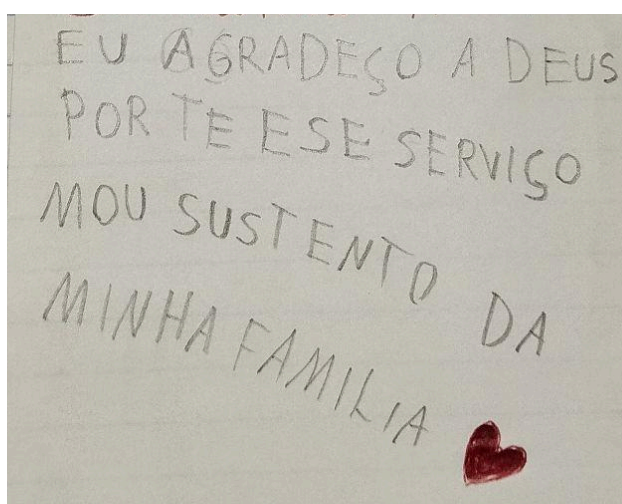 EU AGRADEÇO A DEUS
POR TE ESE SERVIÇO
MOU SUSTENTO DA
MINHA FAMILIA